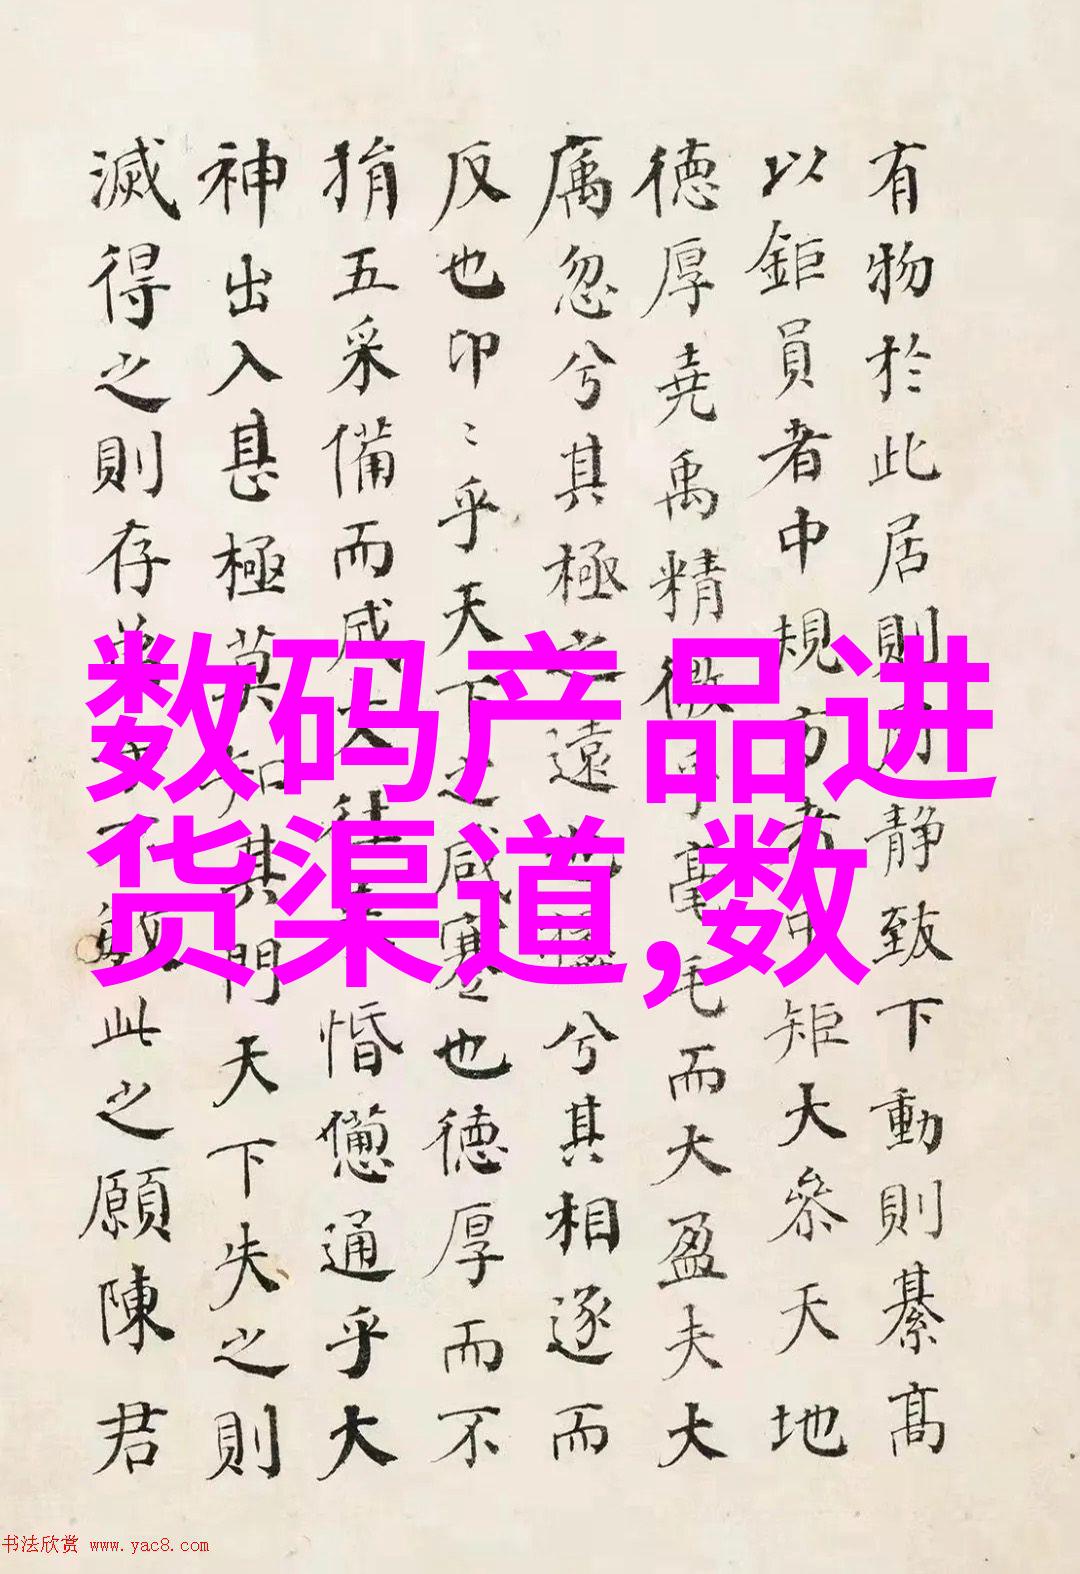 有物於此居則周静致下動則綦高
以鉅員者中規方者中矩大叅天地
德厚堯禹精微乎毫毛而大盈夫大
厲忽兮其極之遠也兮其相逐而
反也卬〻乎天下之咸蹇也德厚而不
捐五采備而成大往惛憊通乎大
神出入甚極莫知其門天下失之則
滅得之則存此之願陳君
数码产品进
货渠道,数
书法欣赏 www.yac8.com